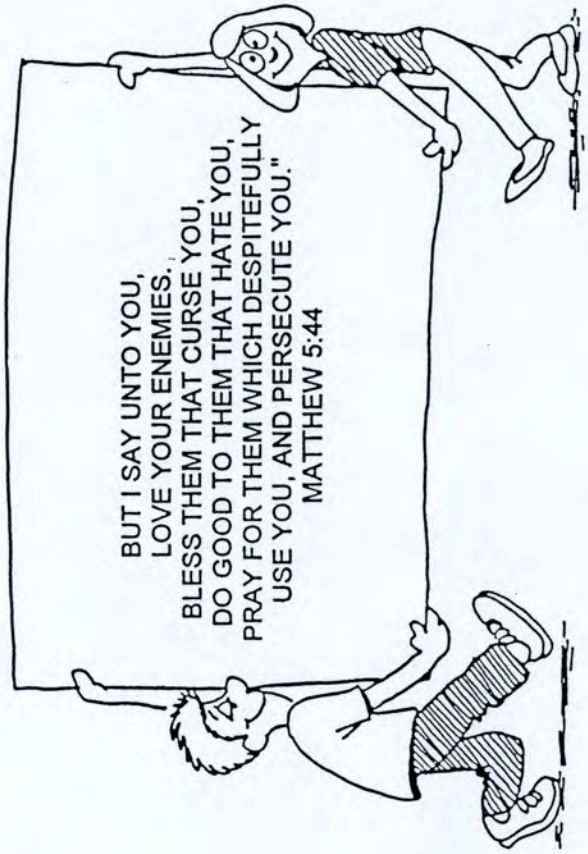 BUT I SAY UNTO YOU,
LOVE YOUR ENEMIES.
BLESS THEM THAT CURSE YOU,
DO GOOD TO THEM THAT HATE YOU,
PRAY FOR THEM WHICH DESPITEFULLY
USE YOU, AND PERSECUTE YOU."
MATTHEW 5:44